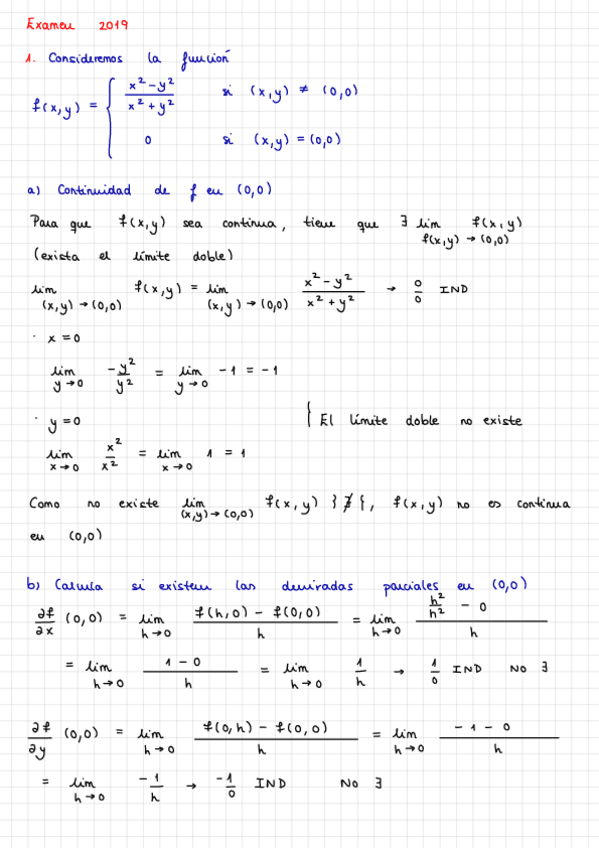 Examen 2019
1. Consideremos la función
f(x,y) = { x²-y² / x²+y² si (x,y) ≠ (0,0)
0 si (x,y) = (0,0)
a) Continuidad de f en (0,0)
Para que f(x,y) sea continua, tiene que ∃ lim f(x,y)
f(x,y) → (0,0)
(exista el límite doble)
lim (x,y)→(0,0) f(x,y) = lim (x,y)→(0,0) x²-y² / x²+y² → 0/0 IND
· x=0
lim y→0 -y²/y² = lim y→0 -1 = -1
· y=0
{ El límite doble no existe
lim x→0 x²/x² = lim x→0 1 = 1
Como no existe lim (x,y)→(0,0) f(x,y) } ∄ {, f(x,y) no es continua
en (0,0)
b) Calcula si existen las derivadas parciales en (0,0)
∂f/∂x (0,0) = lim h→0 f(h,0) - f(0,0) / h = lim h→0 h²/h² - 0 / h
= lim h→0 1-0 / h = lim h→0 1/h → 1/0 IND No ∃
∂f/∂y (0,0) = lim h→0 f(0,h) - f(0,0) / h = lim h→0 -1-0 / h
= lim h→0 -1/h → -1/0 IND No ∃